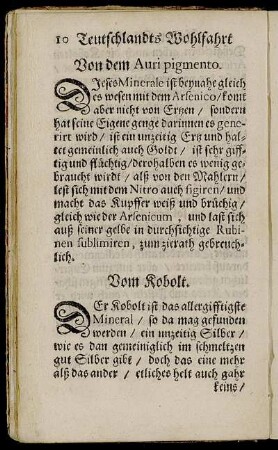 10 Teutschlandts Wohlfahrt
Von dem Auri pigmento.
DIeses Minerale ist beynahe gleich
des wesen mit dem Arsenico / komt
aber nicht von Ertzen / sondern
hat seine Eigene genge darinnen es gene-
rirt wird / ist ein unzeitig Ertz und hal-
tet gemeiniglich auch Goldt / ist sehr giff-
tig und flüchtig / derohalben es wenig ge-
braucht wirdt / alß von den Mahlern /
lest sich mit dem Nitro auch figiren / und
macht das Kupffer weiß und brüchig /
gleich wie der Arsenicum, und last sich
auß seiner gelbe in durchsichtige Rubi-
nen sublimiren, zum zierath gebreuch-
lich.
Vom Kobolt.
DEr Kobolt ist das allergifftigste
Mineral / so da mag gefunden
werden / ein unzeitig Silber /
wie es dan gemeiniglich im schmeltzen
gut Silber gibt / doch das eine mehr
alß das ander / etliches helt auch gahr
keins /